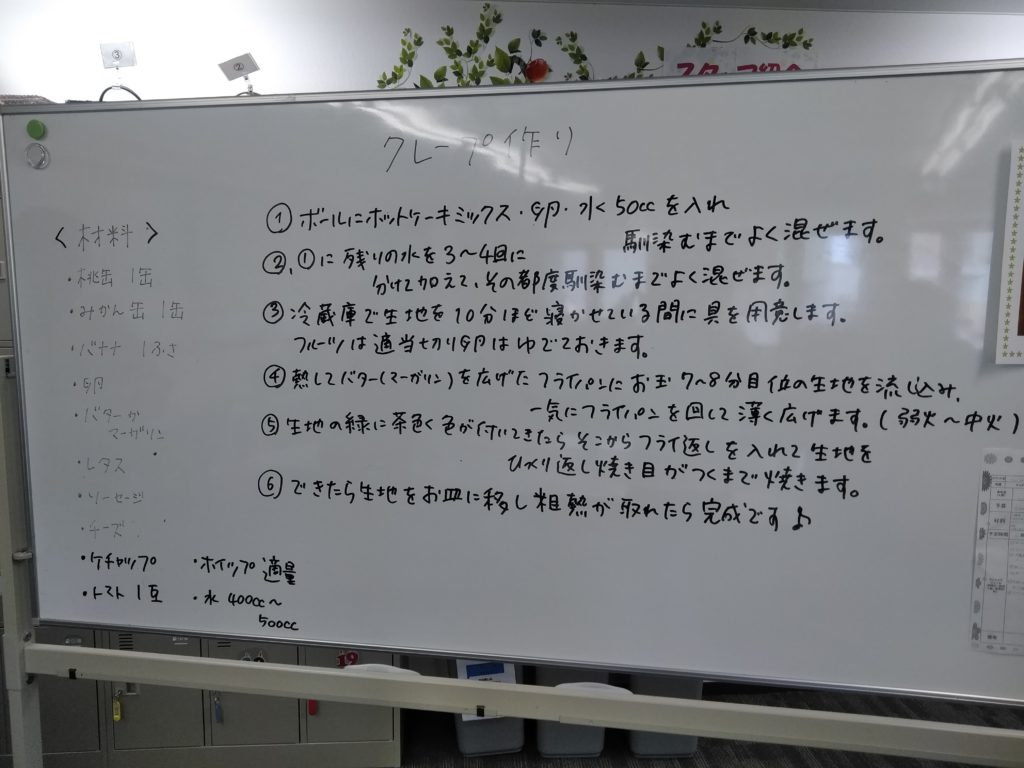 ③
②
スタッフ紹介
クレープ作り
<材料>
・桃缶 1缶
・みかん缶 1缶
・バナナ 1ふさ
・卵
・バターか
マーガリン
・レタス
・ソーセージ
・チーズ
・ケチャップ
・トマト 1玉
・ホイップ 適量
・水 400cc〜
500cc
① ボールにホットケーキミックス・卵・水く50ccを入れ
馴染むまでよく混ぜます。
②,①に残りの水を3〜4回に
分けて加えて、その都度馴染むまでよく混ぜます。
③ 冷蔵庫で生地を10分ほど寝かせている間に具を用意します。
フルーツは適当切り卵はゆでておきます。
④ 熱してバター(マーガリン)を広げたフライパンにお玉7〜8分目位の生地を流し込み、
一気にフライパンを回して薄く広げます。(弱火〜中火)
⑤ 生地の縁に茶色く色が付いてきたらそこからフライ返しを入れて生地を
ひっくり返し焼き目がつくまで焼きます。
⑥ できたら生地をお皿に移し粗熱が取れたら完成です♪
19